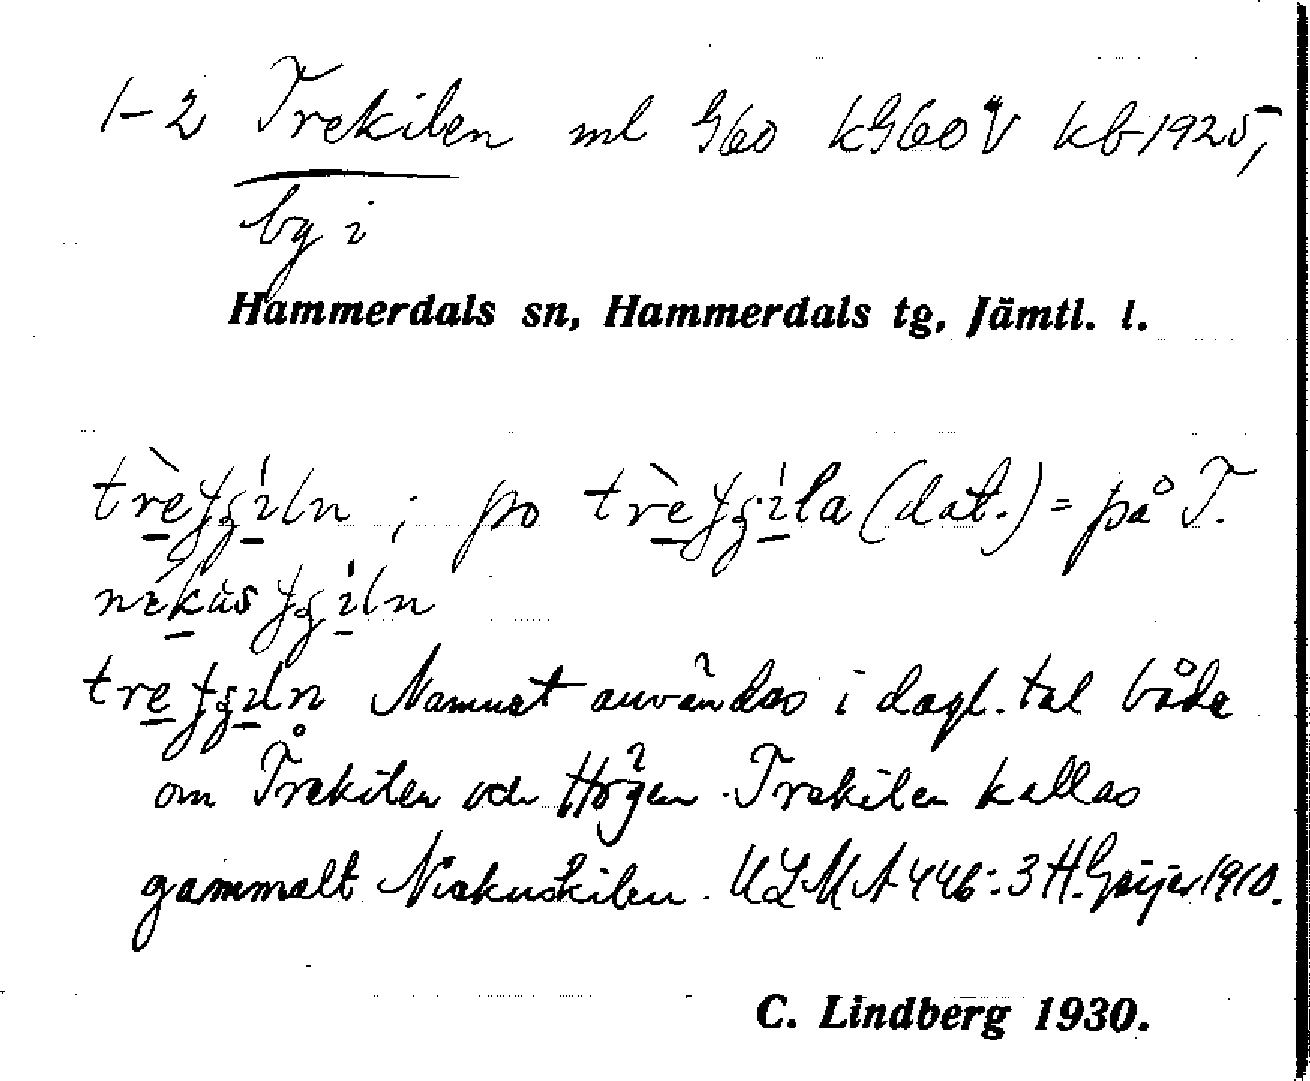 1-2 Trekilen ml G60 kG60V kb 1925,
bg i
Hammerdals sn, Hammerdals tg, Jämtl. l.
po (dat.) = på T.
Namnet användas i dagl. tal både
om Trekilen och Högen. Trekilen kallas
gammalt Niskuskilen. ULMA 446:3 H. Geijer 1910.
C. Lindberg 1930.